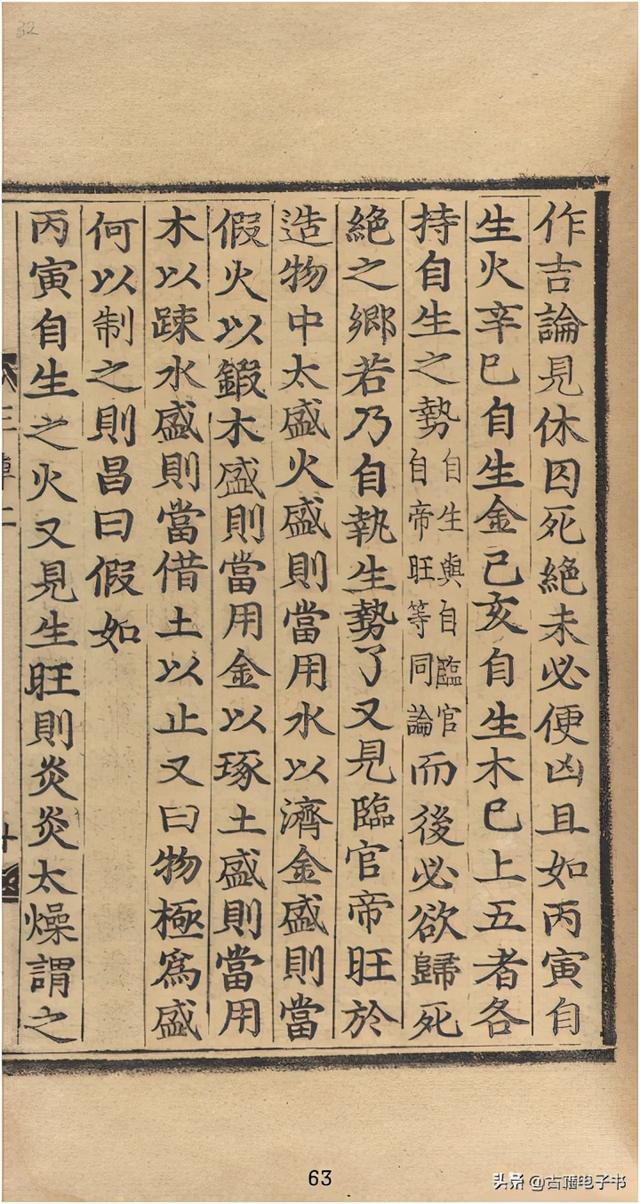 32
作吉論見休囚死絶未必便凶且如丙寅自
生火辛巳自生金己亥自生木巳上五者各
持自生之勢自生與自臨官自帝旺等同論而後必欲歸死
絶之鄉若乃自執生勢了又見臨官帝旺於
造物中太盛火盛則當用水以濟金盛則當
假火以鍛木盛則當用金以琢土盛則當用
木以踈水盛則當借土以止又曰物極爲盛
何以制之則昌曰假如
丙寅自生之火又見生旺則炎炎太燥謂之
63
头条 @古籍电子书